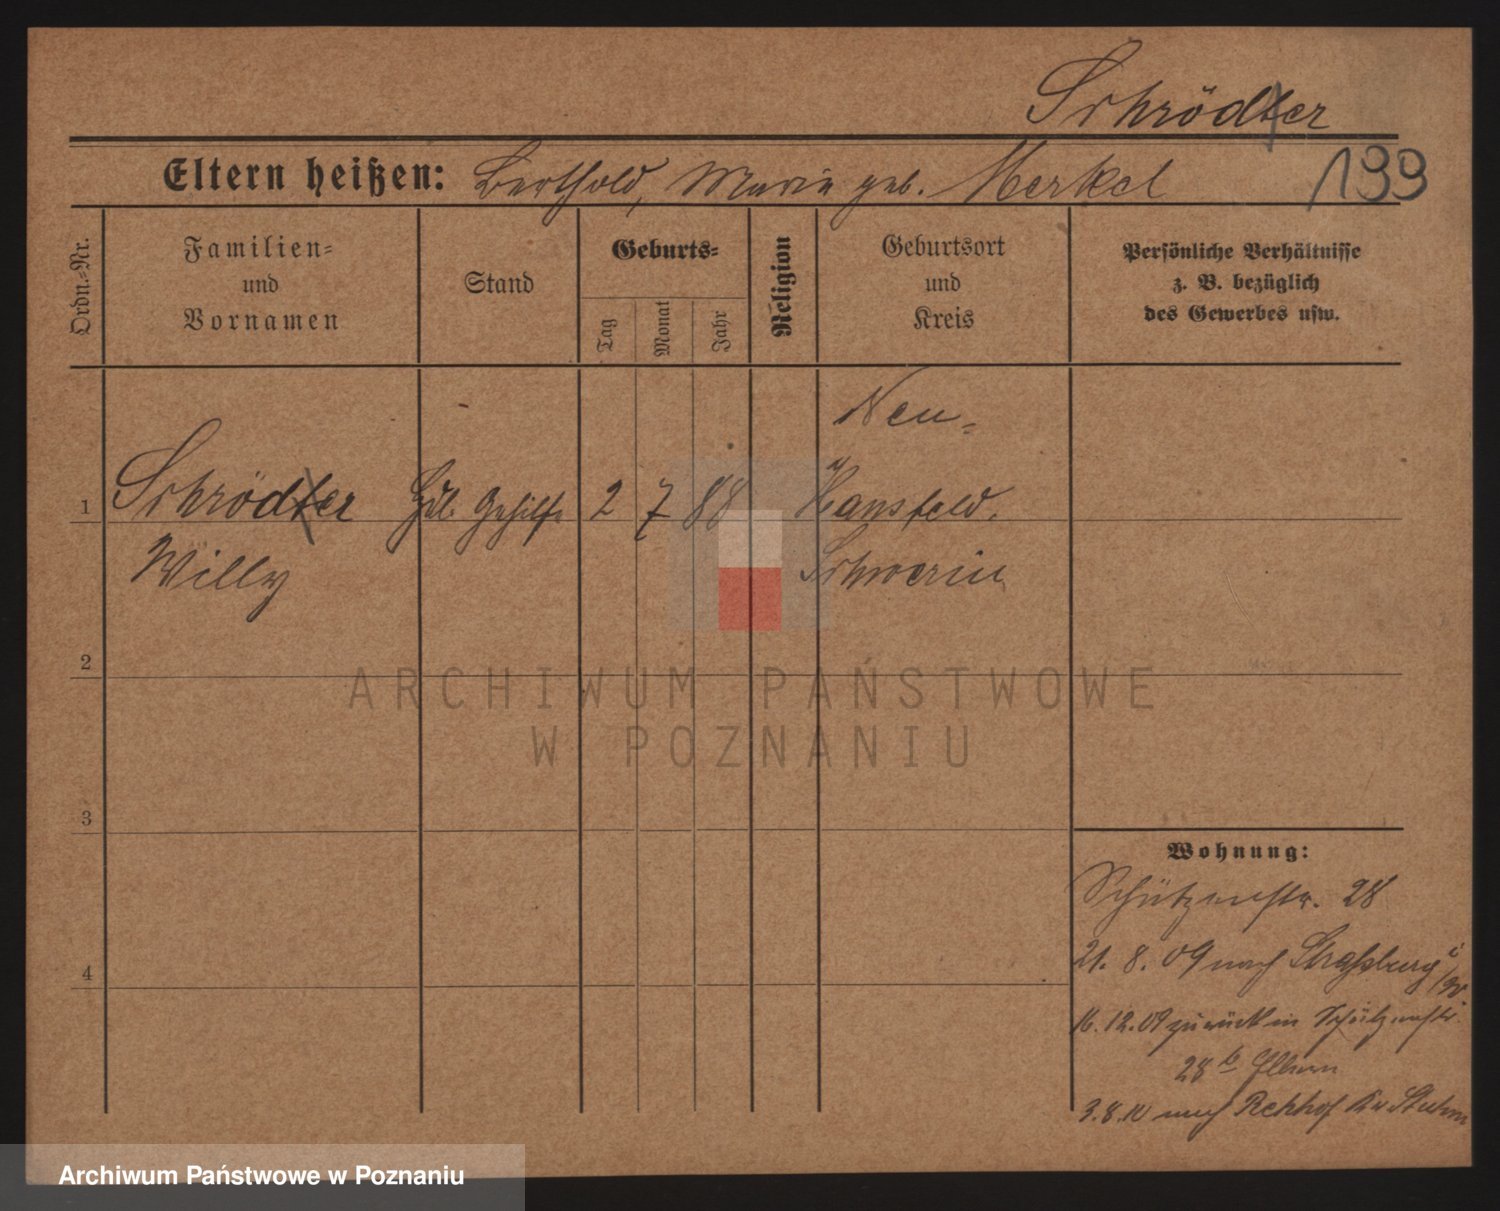 Schrödter
Eltern heißen: Berthold, Marie geb. Merkel
199
Ordn.-Nr.
Familien-
und
Vornamen
Stand
Geburts-
Tag
Monat
Jahr
Religion
Geburtsort
und
Kreis
Persönliche Verhältnisse
z. B. bezüglich
des Gewerbes usw.
Neu-
1 Schrödter Gehilfe 2 7 88 Hansfeld.
Willy Schwerin
2
3
4
Wohnung:
Schützenstr. 28
21. 8. 09 nach Straßburg i/W
16. 12. 09 zurück in Schützenstr.
28 b Eltern
3. 8. 10 nach Rehhof Kr Stuhm
ARCHIWUM PAŃSTWOWE
W POZNANIU
Archiwum Państwowe w Poznaniu